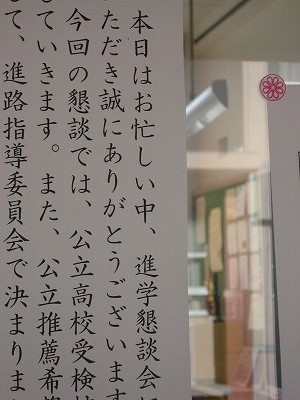 本日はお忙しい中、進学懇談会
ただき誠にありがとうございます
今回の懇談では、公立高校受検
していきます。また、公立推薦希
して、進路指導委員会で決まりま